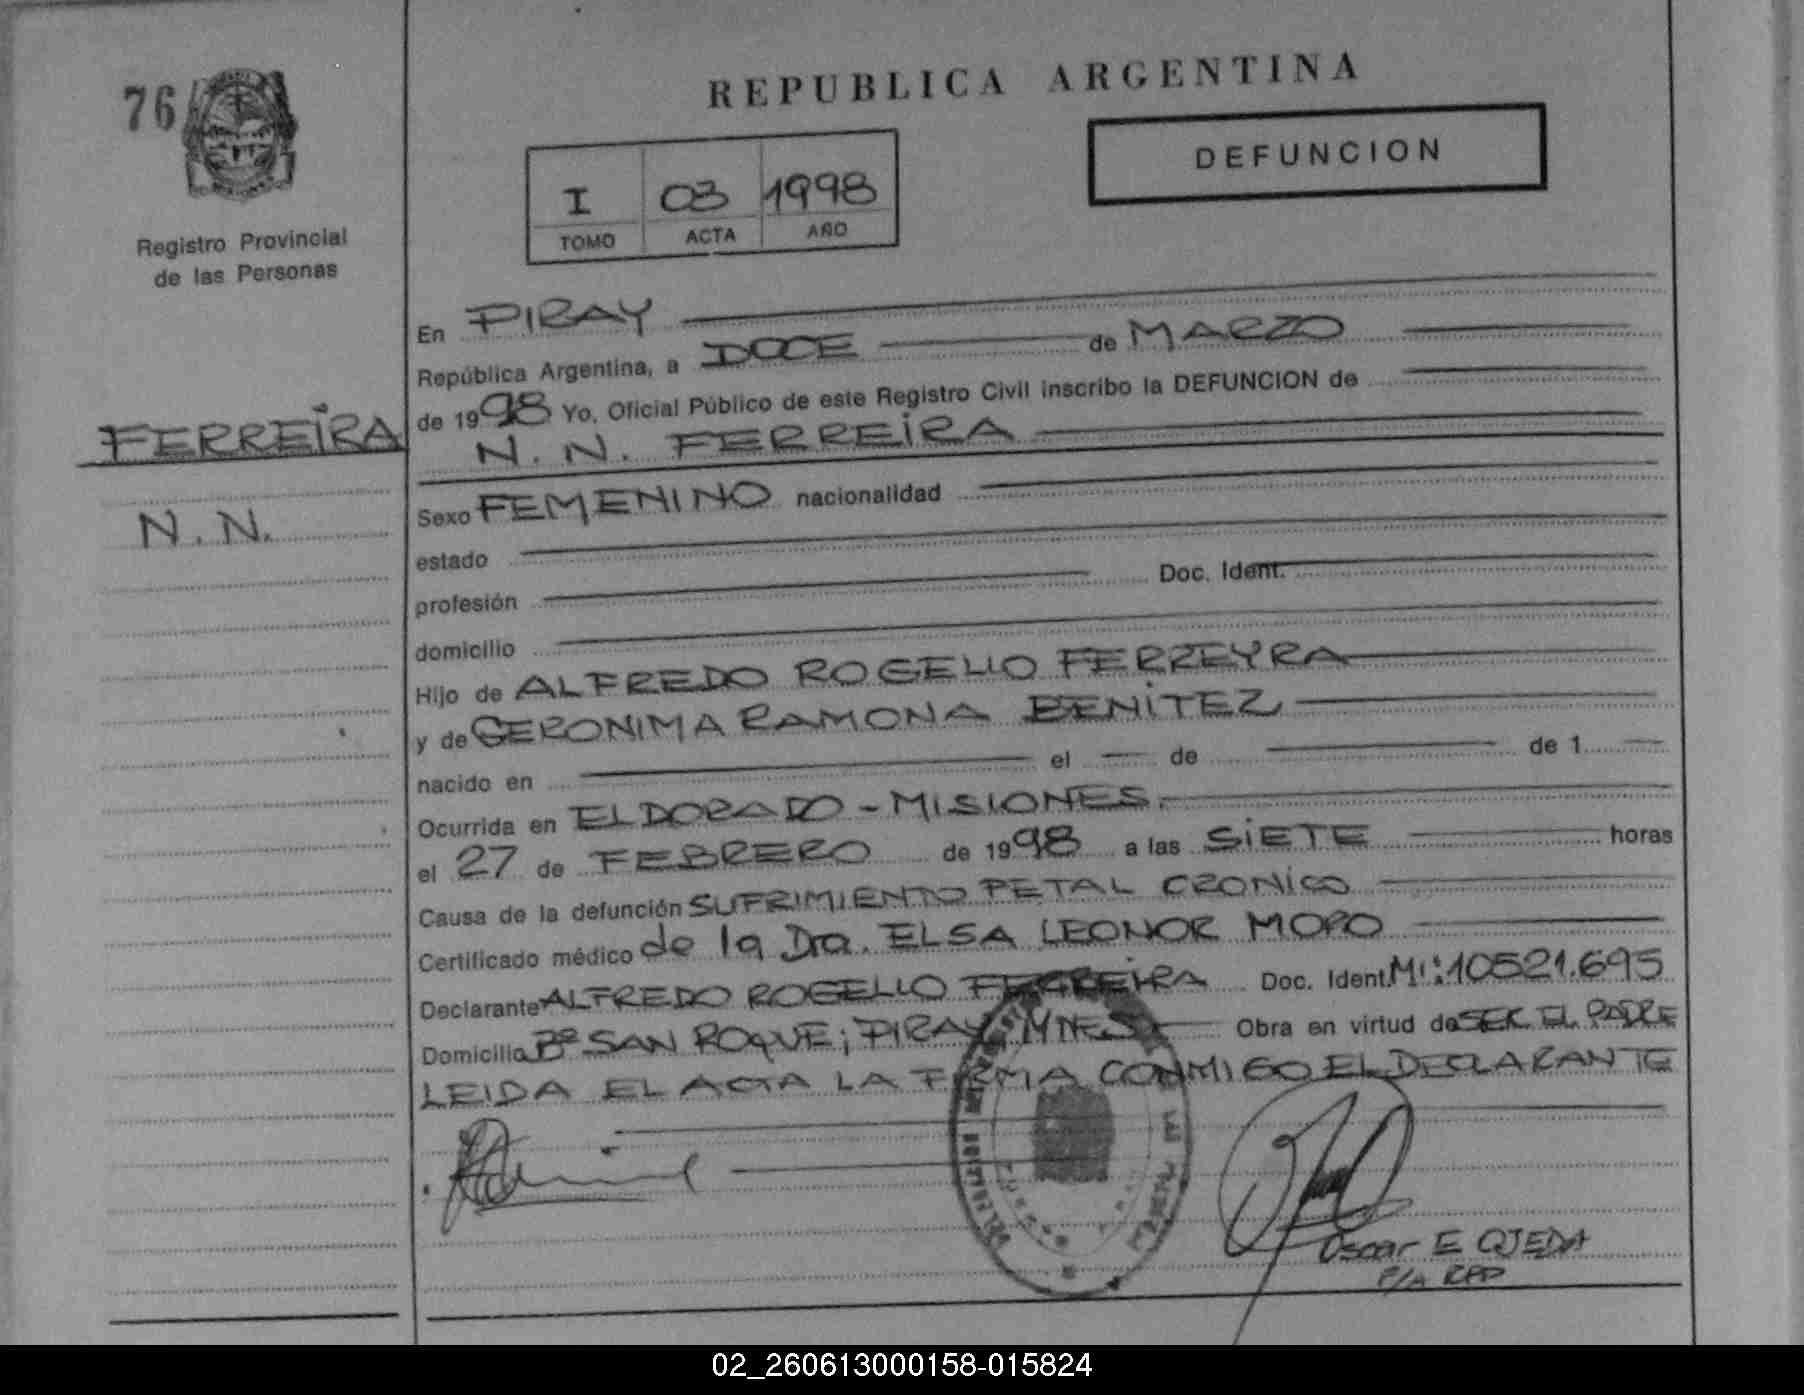 76
Registro Provincial
de las Personas
FERREIRA
N. N.
REPUBLICA ARGENTINA
DEFUNCION
I 03 1998
TOMO ACTA AÑO
En PIRAY
República Argentina, a DOCE de MARZO
de 1998 Yo, Oficial Público de este Registro Civil inscribo la DEFUNCION de
N. N. FERREIRA
Sexo FEMENINO nacionalidad
estado
profesión Doc. Ident.
domicilio
Hijo de ALFREDO ROGELIO FERREYRA
y de GERONIMA RAMONA BENITEZ
nacido en el de de 1
Ocurrida en ELDORADO - MISIONES.
el 27 de FEBRERO de 1998 a las SIETE horas
Causa de la defunción SUFRIMIENTO FETAL CRONICO
Certificado médico de la Dra. ELSA LEONOR MORO
Declarante ALFREDO ROGELIO FERREIRA Doc. Ident. MI: 10521.695
Domicilio Bº SAN ROQUE; PIRAY MNES Obra en virtud de SER EL PADRE
LEIDA EL ACTA LA FIRMA CONMIGO EL DECLARANTE
Oscar E OJEDA
P/A RPP
02_260613000158-015824